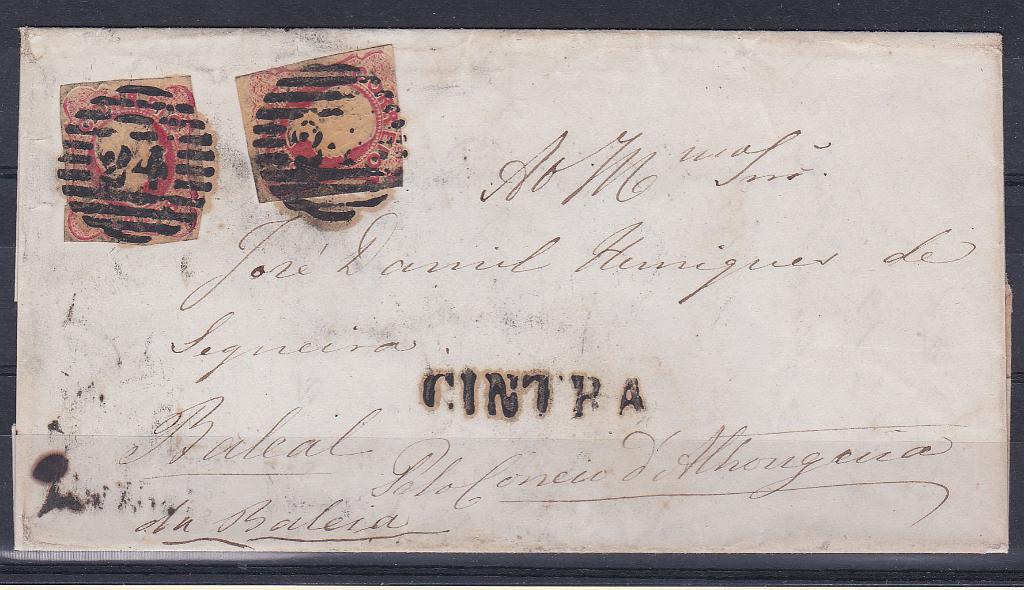 24
Ao Mmo Snr.
José Daniel Henriques de
Sequeira
CINTRA
Baleal
Pelo Correio d'Athouguia
da Baleia